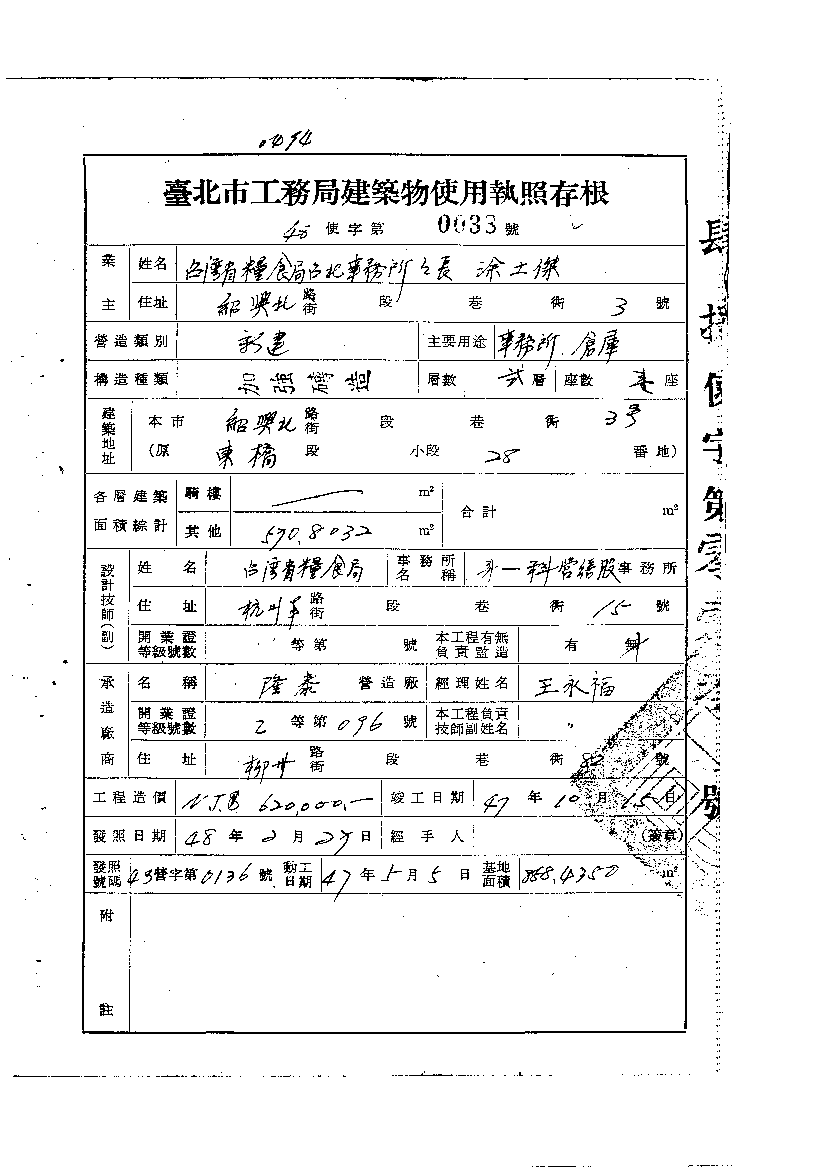 0494
臺北市工務局建築物使用執照存根
48 使字第 0033 號
業主 姓名 台湾省糧食局台北事務所 長 涂士傑
住址 紹興北 路街 段 巷 衖 3 號
營造類別 新建 主要用途 事務所 倉庫
構造種類 加強磚造 層數 弍 層 座數 座
建築地址 本市 紹興北 路街 段 巷 衖 3号
(原 東橋 段 小段 28 番地)
各層建築面積綜計 騎樓 m² 合計 m²
其他 590.8032 m²
設計技師(副) 姓名 台湾省糧食局 事務所名稱 才一科營繕股 事務所
住址 杭州 路街 段 巷 衖 15 號
開業證等級號數 等第 號 本工程有無負責監造 有 無
承造廠商 名稱 隆泰 營造廠 經理姓名 王永福
開業證等級號數 乙 等第 096 號 本工程負責技師副姓名 〃
住址 柳州 路街 段 巷 衖 82 號
工程造價 N.T.$ 620,000.— 竣工日期 47 年 10 月 15 日
發照日期 48 年 2 月 27 日 經手人 (簽章)
發照號碼 43 營字第 0136 號 動工日期 47 年 5 月 5 日 基地面積 858.4350 m²
附註
肆 捌 使 字 第 零 號